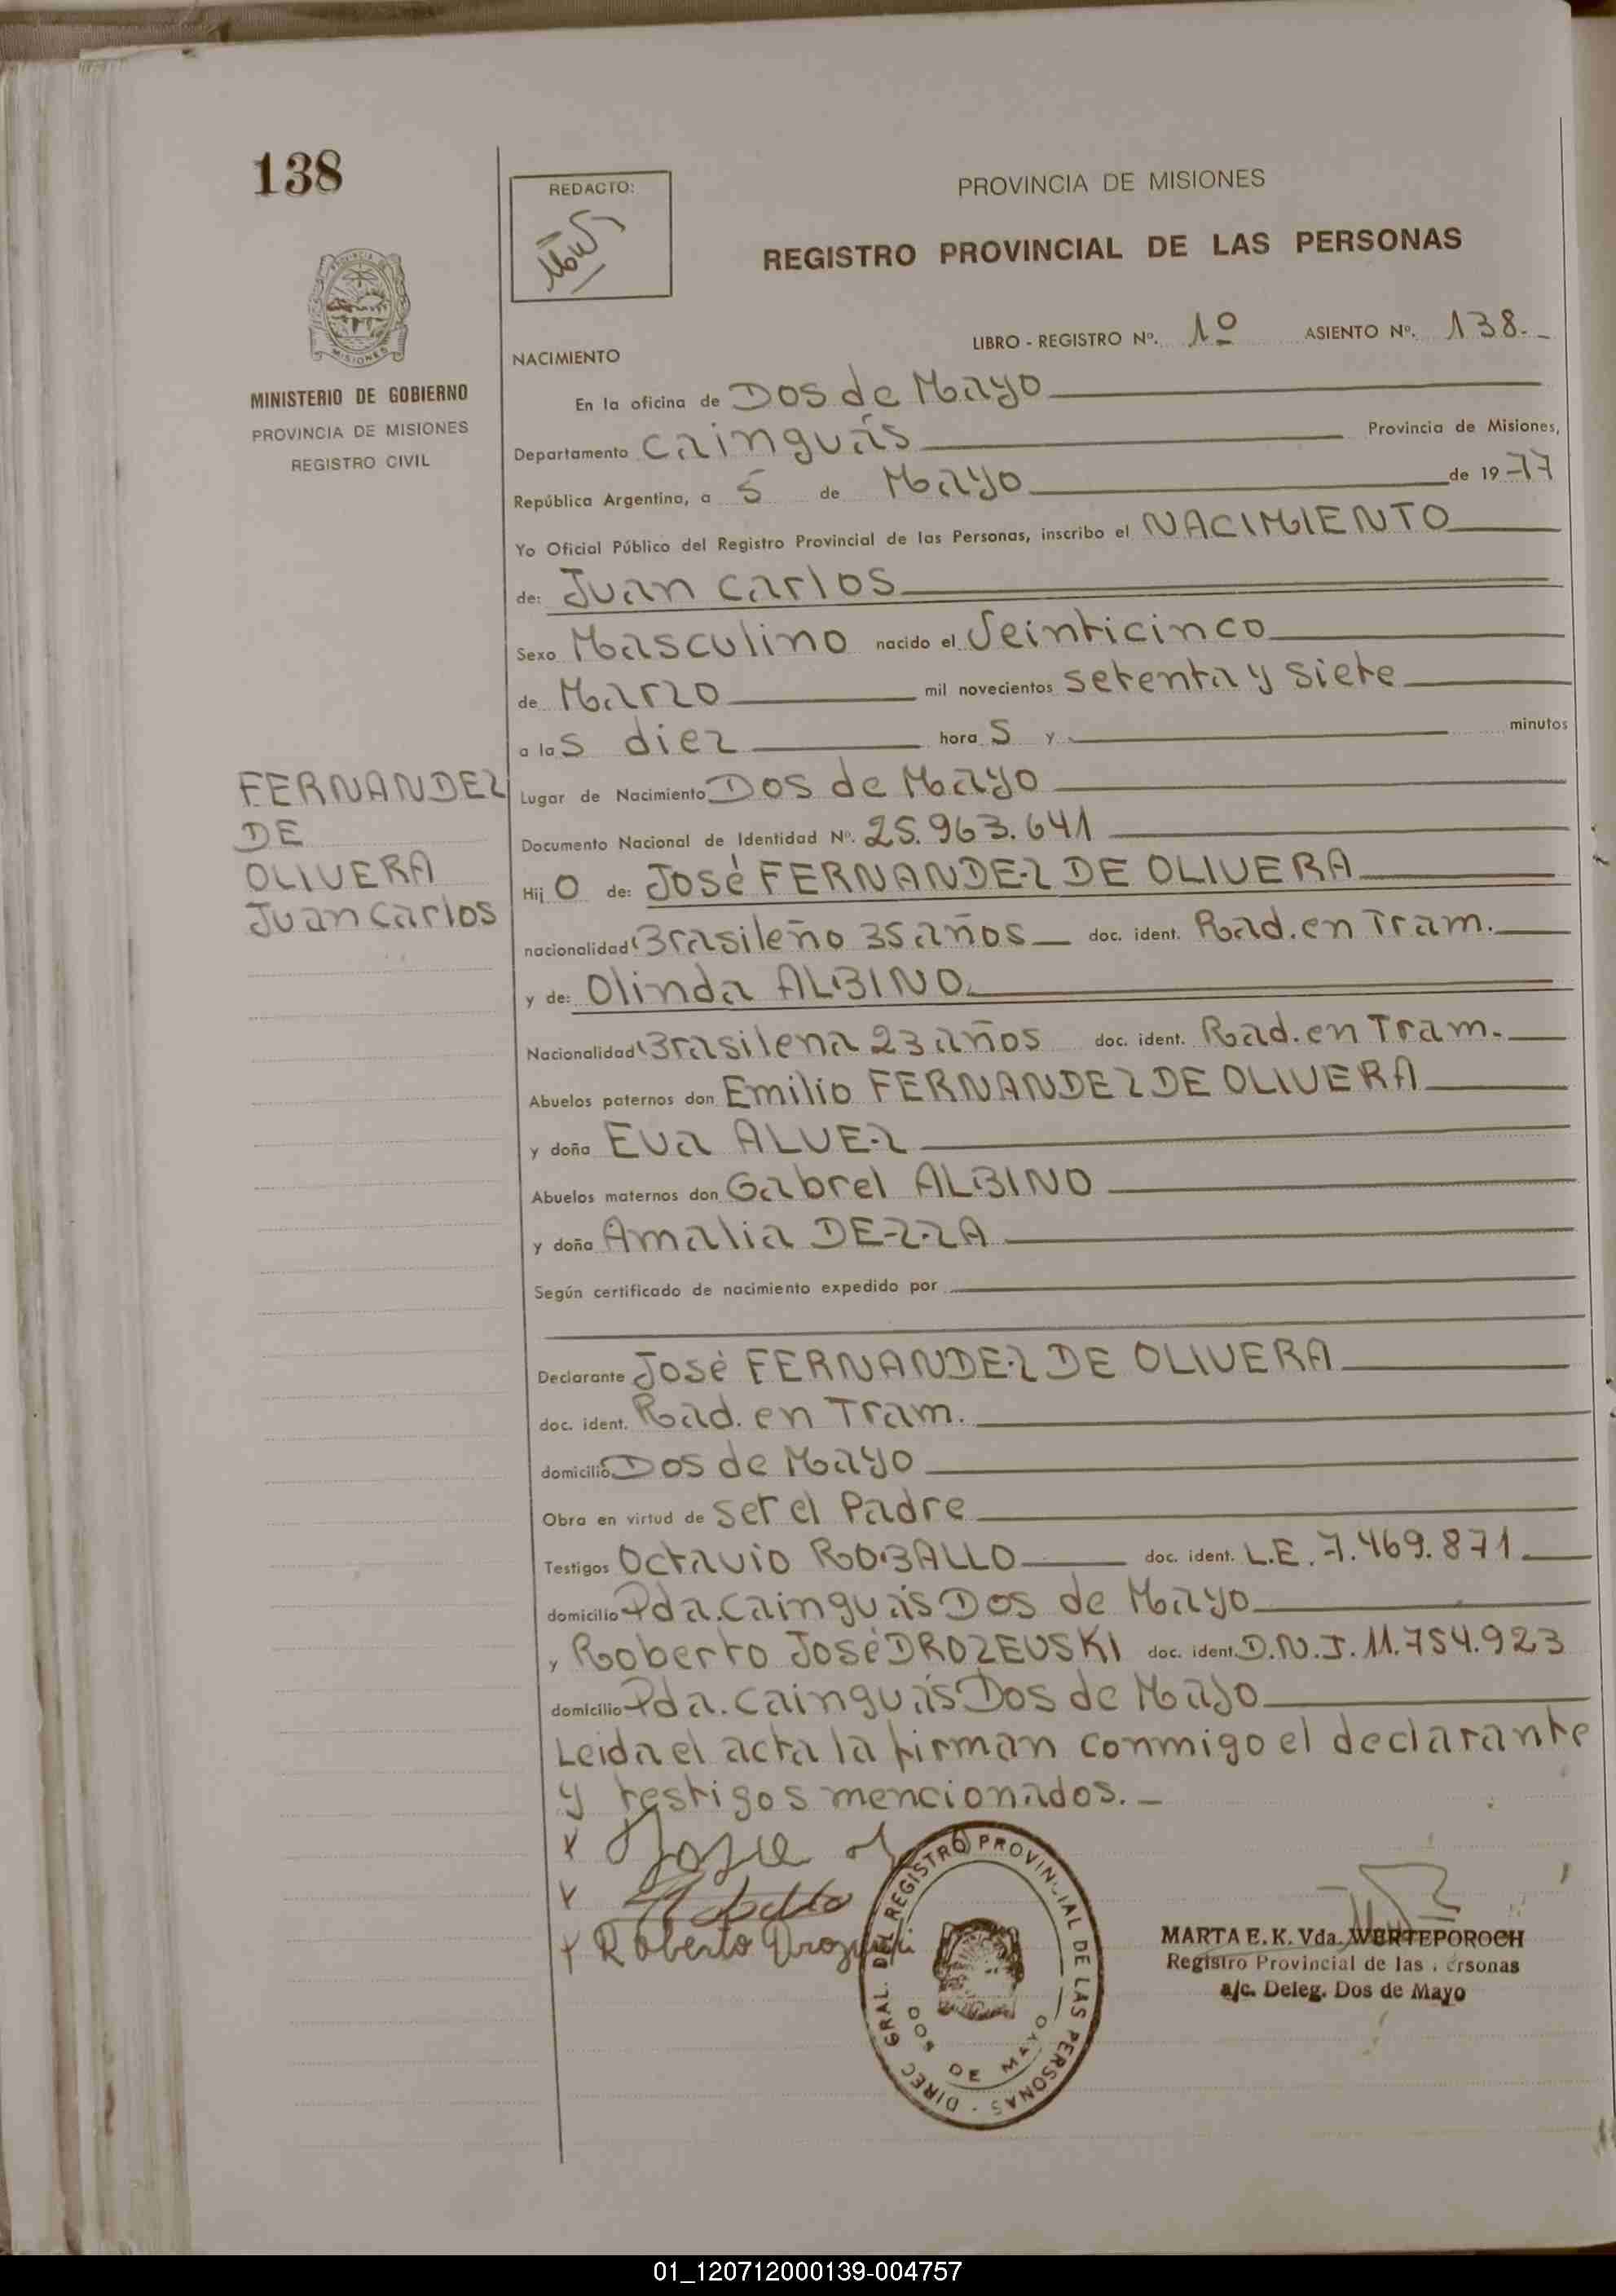 138
REDACTO:
PROVINCIA DE MISIONES
REGISTRO PROVINCIAL DE LAS PERSONAS
PROVINCIA DE
MISIONES
MINISTERIO DE GOBIERNO
PROVINCIA DE MISIONES
REGISTRO CIVIL
LIBRO - REGISTRO Nº. 1º ASIENTO Nº. 138.-
NACIMIENTO
En la oficina de Dos de Mayo
Departamento Cainguás Provincia de Misiones,
República Argentina, a 5 de Mayo de 1977
Yo Oficial Público del Registro Provincial de las Personas, inscribo el NACIMIENTO
de: Juan Carlos
Sexo Masculino nacido el Veinticinco
de Marzo mil novecientos setenta y siete
a las diez horas y minutos
FERNANDEZ
DE
OLIVERA
Juan Carlos
Lugar de Nacimiento Dos de Mayo
Documento Nacional de Identidad Nº. 25.963.641
Hijo de: José FERNANDEZ DE OLIVERA
nacionalidad Brasileño 35 años doc. ident. Rad. en Tram.
y de: Olinda ALBINO
Nacionalidad Brasilena 23 años doc. ident. Rad. en Tram.
Abuelos paternos don Emilio FERNANDEZ DE OLIVERA
y doña Eva ALVEZ
Abuelos maternos don Gabrel ALBINO
y doña Amalia DEZZA
Según certificado de nacimiento expedido por
Declarante José FERNANDEZ DE OLIVERA
doc. ident. Rad. en Tram.
domicilio Dos de Mayo
Obra en virtud de ser el Padre
Testigos Octavio ROBALLO doc. ident. L.E. 7.469.871
domicilio Pda. Cainguás Dos de Mayo
y Roberto José DROZEUSKI doc. ident. D.N.I. 11.754.923
domicilio Pda. Cainguás Dos de Mayo
Leida el acta la firman conmigo el declarante
y testigos mencionados.-
x Jose
x
x Roberto
DIREC GRAL. DEL REGISTRO PROVINCIAL DE LAS PERSONAS -
DOS DE MAYO
MARTA E. K. Vda. WERTEPOROCH
Registro Provincial de las ersonas
a/c. Deleg. Dos de Mayo
01_120712000139-004757